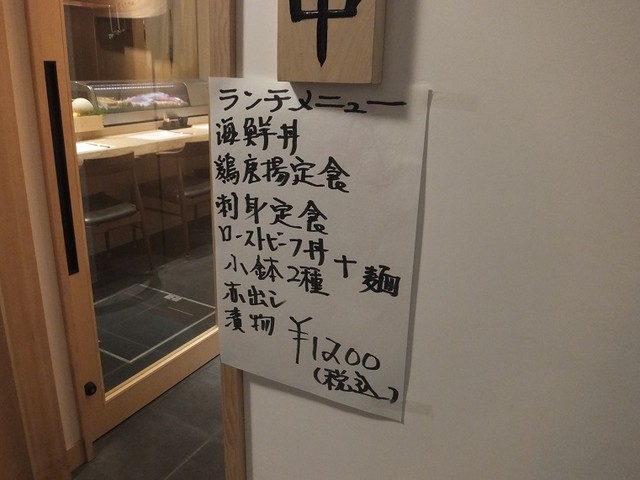 中
ランチメニュー
海鮮丼
鶏唐揚定食
刺身定食
ローストビーフ丼
小鉢2種 + 麺
赤出し
漬物
¥1200
(税込)